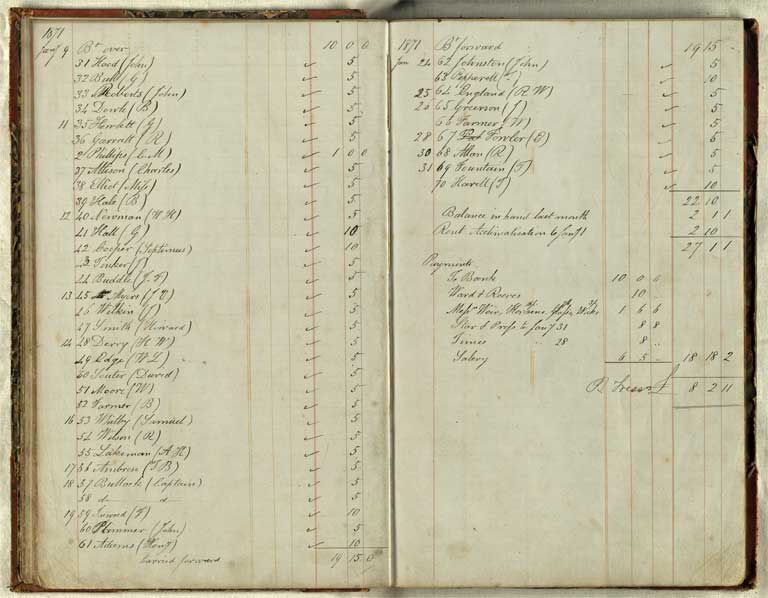 1871
Jany 9 Bt over 10 0 0
31 Hood (John) ✓ 5
32 Bull (G) ✓ 5
33 Roberts (John) ✓ 5
34 Dowle (B) ✓ 5
11 35 Howlett (G) ✓ 5
36 Garratt (R) ✓ 5
2 Phillips (C.M) ✓ 1 0 0
37 Allison (Charles) ✓ 5
38 (Miss) ✓ 5
39 Hale (B) ✓ 5
12 40 Newman (W H) ✓ 5
41 Hall (G) ✓ 10
42 Cooper (Septimus) ✓ 10
43 Tinker ✓ 5
44 Buddle (J. F) ✓ 5
13 45 Ayers ✓ 5
46 Wilkin ✓ 5
47 Smith (Howard) ✓ 5
14 48 Derry (H W) ✓ 5
49 Edge (W L) ✓ 5
50 Souter (David) ✓ 5
51 Moore (W) ✓ 5
52 Farmer (B) ✓ 5
16 53 Whitby (Samuel) ✓ 5
54 Wilson (R) ✓ 5
55 Lakeman (A H) ✓ 5
17 56 Ambrose (T B) ✓ 5
18 57 Bullock (Captain) ✓ 5
58 d d ✓ 5
19 59 (T) ✓ 10
60 Plummer (John) ✓ 5
61 Adams (Henry) ✓ 10
Carried forward 19 15 0
1871 Bt forward 19 15 -
Jan 24 62 Johnston (John) ✓ 5
63 Pepperell ✓ 10
25 64 England (R. W) ✓ 5
26 65 Grierson (J) ✓ 5
66 Farmer (W) ✓ 5
28 67 Fowler (E) ✓ 5
30 68 Allan (R) ✓ 5
31 69 Fountain (T) ✓ 5
70 Havell (T) ✓ 10
22 10
Balance in hand last month 2 1 1
Rent Acclimatisation to Jany 1 2 10
27 1 1
Payments
To Bank 10 0 0
Ward & Reeves 10 -
Messrs Weir, 1 6 6
Star & Press to Jany 31 8 8
Times " 28 8 -
Salary 6 5 - 18 18 2
£ 8 2 11